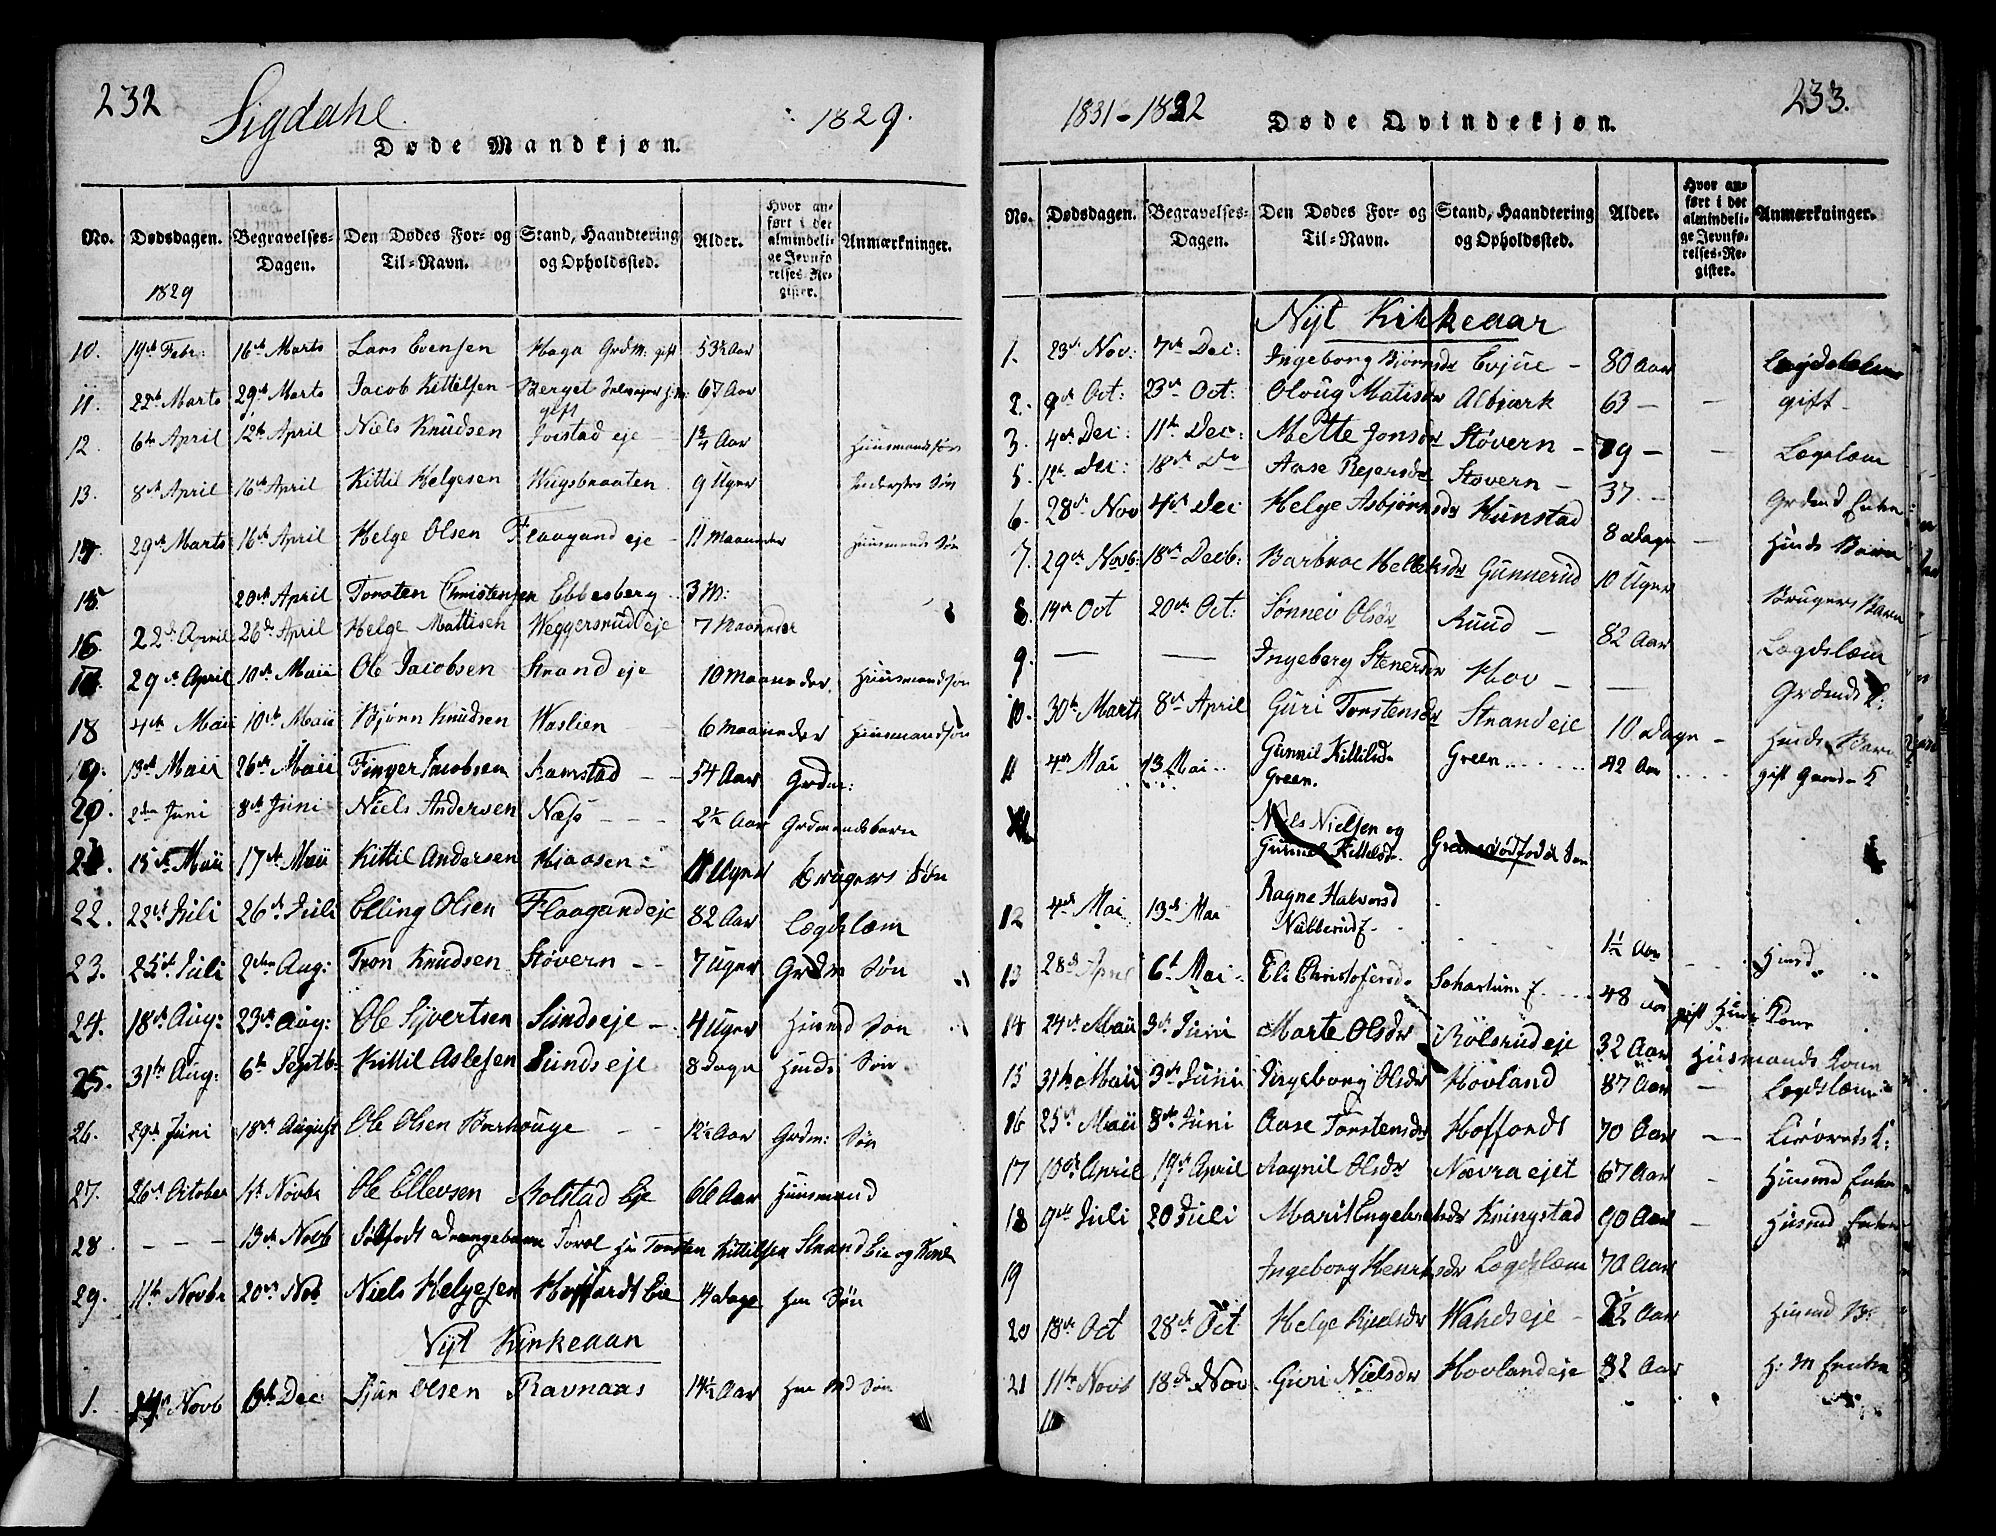 232
Sigdahl
1829.
Døde Mandkjøn.
No. Dødsdagen. Begravelses-Dagen. Den Dødes For- og Til-Navn. Stand, Haandtering og Opholdssted. Alder. Hvor anført i det almindelige Jevnførelses-Register. Anmærkninger.
1829
10. 19de Febr: 16de Marts Lars Evensen Haga Grdm: gift 53½ Aar
11. 22de Marts 29de Marts Jacob Kittilsen Berget gift 67 Aar
12 6te April 12te April Niels Knudsen Joestad eje 1¾ Aar Huusmandssøn
13. 8de April 16de April Kittil Helgesen Wugsbraaten 9 Uger Søn
14 29de Marts 16de April Helge Olsen Flaagand eje 11 Maaneder Huusmands Søn
15 20de April Torsten Christensen Ebbesberg 3 M:
16 22de April 26de April Helge Mattisen Weggersrud eje 7 Maaneder
17. 29de April 10de Maii Ole Jacobsen Strand eje 10 Maaneder Huusmandssøn
18 4de Maii 10de Maii Bjørn Knudsen Waslien 6 Maaneder Huusmandssøn
19: 13de Maii 26de Maii Finger Jacobsen Aamstad 54 Aar Grdm:
20. 2den Juni 8de Juni Niels Andersen Næss 2½ Aar Grdmandsbarn
21. 15de Maii 17de Maii Kittil Andersen Hiaasen 11 Uger Brugers Søn
22. 22de Juli 26de Juli Elling Olsen Flaagand eje 82 Aar Lægdslem
23. 25de Juli 2den Aug: Tron Knudsen Støvern 7 Uger Grdm Søn
24. 18de Aug: 23de Aug: Ole Sjvertsen Sundseje 4 Uger Huusmd Søn
25. 31te Aug: 6te Septb: Kittil Aslesen Sunds eje 8 Dage Husmds Søn
26. 29de Juni 18de August Ole Olsen Bærhouge 12½ Aar Grdm: Søn
27. 26de October 1te Novbr Ole Ellevsen Rolstad Eje 66 Aar Huusmand
28 13de Novb Dødfødt Drengebarn Forel Hm Torsten Kittilsen Strand Eie og Kone
29. 11te Novbr 20de Nob Niels Helgesen Hoffardt Eie 14 Dage Hm Søn
Nyt Kirkeaar
1. Novb 13de Dec: Sjur Olsen Ravnaas 14½ Aar Hm Md Søn
1831-1832
Døde Qvindekjøn.
233.
No. Dødsdagen. Begravelses-Dagen. Den Dødes For- og Til-Navn. Stand, Haandtering og Opholdssted. Alder. Hvor anført i det almindelige Jevnførelses-Register. Anmærkninger.
Nyt Kirkeaar
1. 23de Nov: 7de Dec: Ingeborg Bjørnsdr Evjue 80 Aar Lægdslem
2. 9de Oct: 23de Oct: Oloug Matisdr Albjærk 63 gift
3. 4de Dec: 11te Dec: Mette Jonsdr Støvern 79 Lægslæm
5. 12te Dec: 18de Do Aase Rejersdr Støvern 37 Grdmd Enke
6. 28de Nov 4de Dec Helge Asbjørnsdr Hunstad 8 Dage Husmds Barn
7. 29de Novb: 18de Decb: Barbroe Helleksdr Gunnerud 10 Uger Brugers Barn
8. 14de Oct 20de Oct: Sønnev Olsdr Ruud 82 Aar Lægdslæm
9. Ingeberg Stenersdr Hov Grdmds K:
10. 30te Marts 8de April Guri Torstensdr Strand eje 10 Dage Husmds Barn
11 4de Mai 13 Mai Gunnil Kittilsd. Green. Green 42 Aar gift Gaardm K
Niels Nielsen og Gunnel Kittilsdr. Green dødfødt Søn
12 4de Mai 13de Mai Ragne Halvorsd Nubberud E.
13 28de April 6te Mai Eli Christofersd. Schartum E. 1½ Aar Husmd
14 24de Maii 3de Juni Marte Olsdr Rolsrud eje 48 Aar gift Husm Kone
15 31te Maii 3de Juni Ingeborg Olsdr Hovland 32 Aar Husmands Kone
16 25de Maii 8de Juni Aase Torstensdr Hoffardt 87 Aar Lægdslæm
17 13de April 19de April Aagnil Olsdr Nævra ejet 70 Aar
18 9de Juli 20 Juli Marit Engebretsdr Kringstad 67 Aar Husmd Enke
90 Aar Husmd Enke
19 Ingeborg Henriksdr Lægdslæm 70 Aar
20 18de Oct 28de Oct Helge Kjælsdr Wahdseje ½ Aar Husmd B:
21 11te Novb 18de Nov Guri Nielsdr Hovland eje 82 Aar H: M Enke